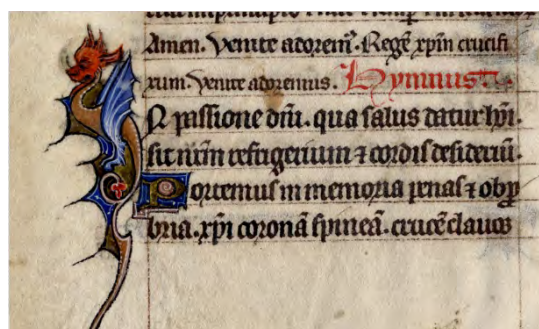 Amen. Venite adorem᷒. Regē xp̄m crucifi
xum. Venite adoremus. Hymnus.
N passione dn̄i. qua salus datur hōi.
sit nr̄m refrigerium ⁊ cordis desideriū.
Portemus in memoria penas ⁊ obp̄
bria. xp̄i coronā spineā. crucē clauos